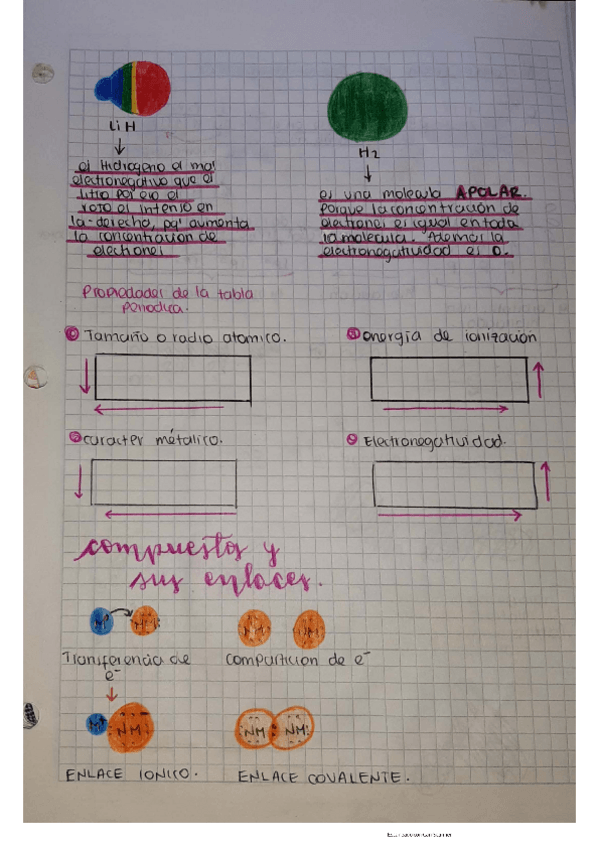 LiH
el Hidrogeno el mas
electronegativo que el
litio por eso el
rojo el intenso en
la derecha, pq' aumenta
la concentración de
electrones
H2
es una molecula APOLAR.
Porque la concentración de
electrones es igual en toda
la molecula. Ademas la
electronegatividad es 0.
Propiedades de la tabla
Periodica.
Tamaño o radio atomico.
energía de ionización
caracter métalico.
Electronegatividad.
compuestos y
sus enlaces.
M NM NM NM
Transferencia de
e-
Compartición de e-
M NM NM NM
ENLACE IONICO.
ENLACE COVALENTE.